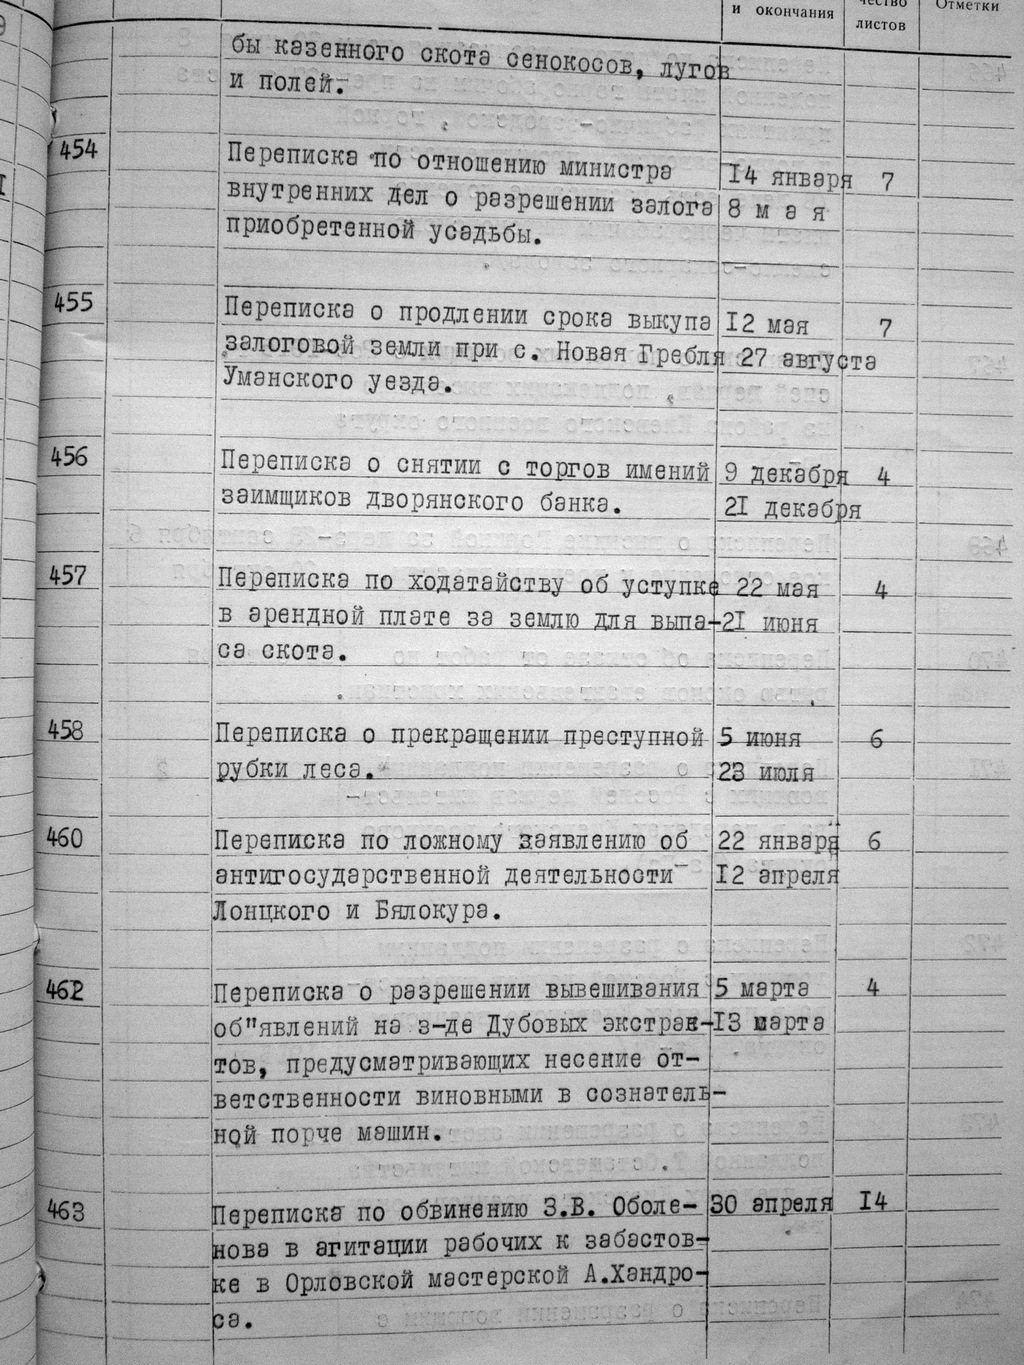 и окончания
чество
листов
Отметки
бы казенного скота сенокосов, лугов
и полей.
454
Переписка по отношению министра 14 января 7
внутренних дел о разрешении залога 8 м а я
приобретенной усадьбы.
455
Переписка о продлении срока выкупа 12 мая 7
залоговой земли при с. Новая Гребля 27 августа
Уманского уезда.
456
Переписка о снятии с торгов имений 9 декабря 4
заимщиков дворянского банка. 21 декабря
457
Переписка по ходатайству об уступке 22 мая 4
в арендной плате за землю для выпа- 21 июня
са скота.
458
Переписка о прекращении преступной 5 июня 6
рубки леса. 23 июля
460
Переписка по ложному заявлению об 22 января 6
антигосударственной деятельности 12 апреля
Лонцкого и Бялокура.
462
Переписка о разрешении вывешивания 5 марта 4
об"явлений на з-де Дубовых экстрак- 13 марта
тов, предусматривающих несение от-
ветственности виновными в сознатель-
ной порче машин.
463
Переписка по обвинению З.В. Оболе- 30 апреля 14
нова в агитации рабочих к забастов-
ке в Орловской мастерской А.Хандро-
са.